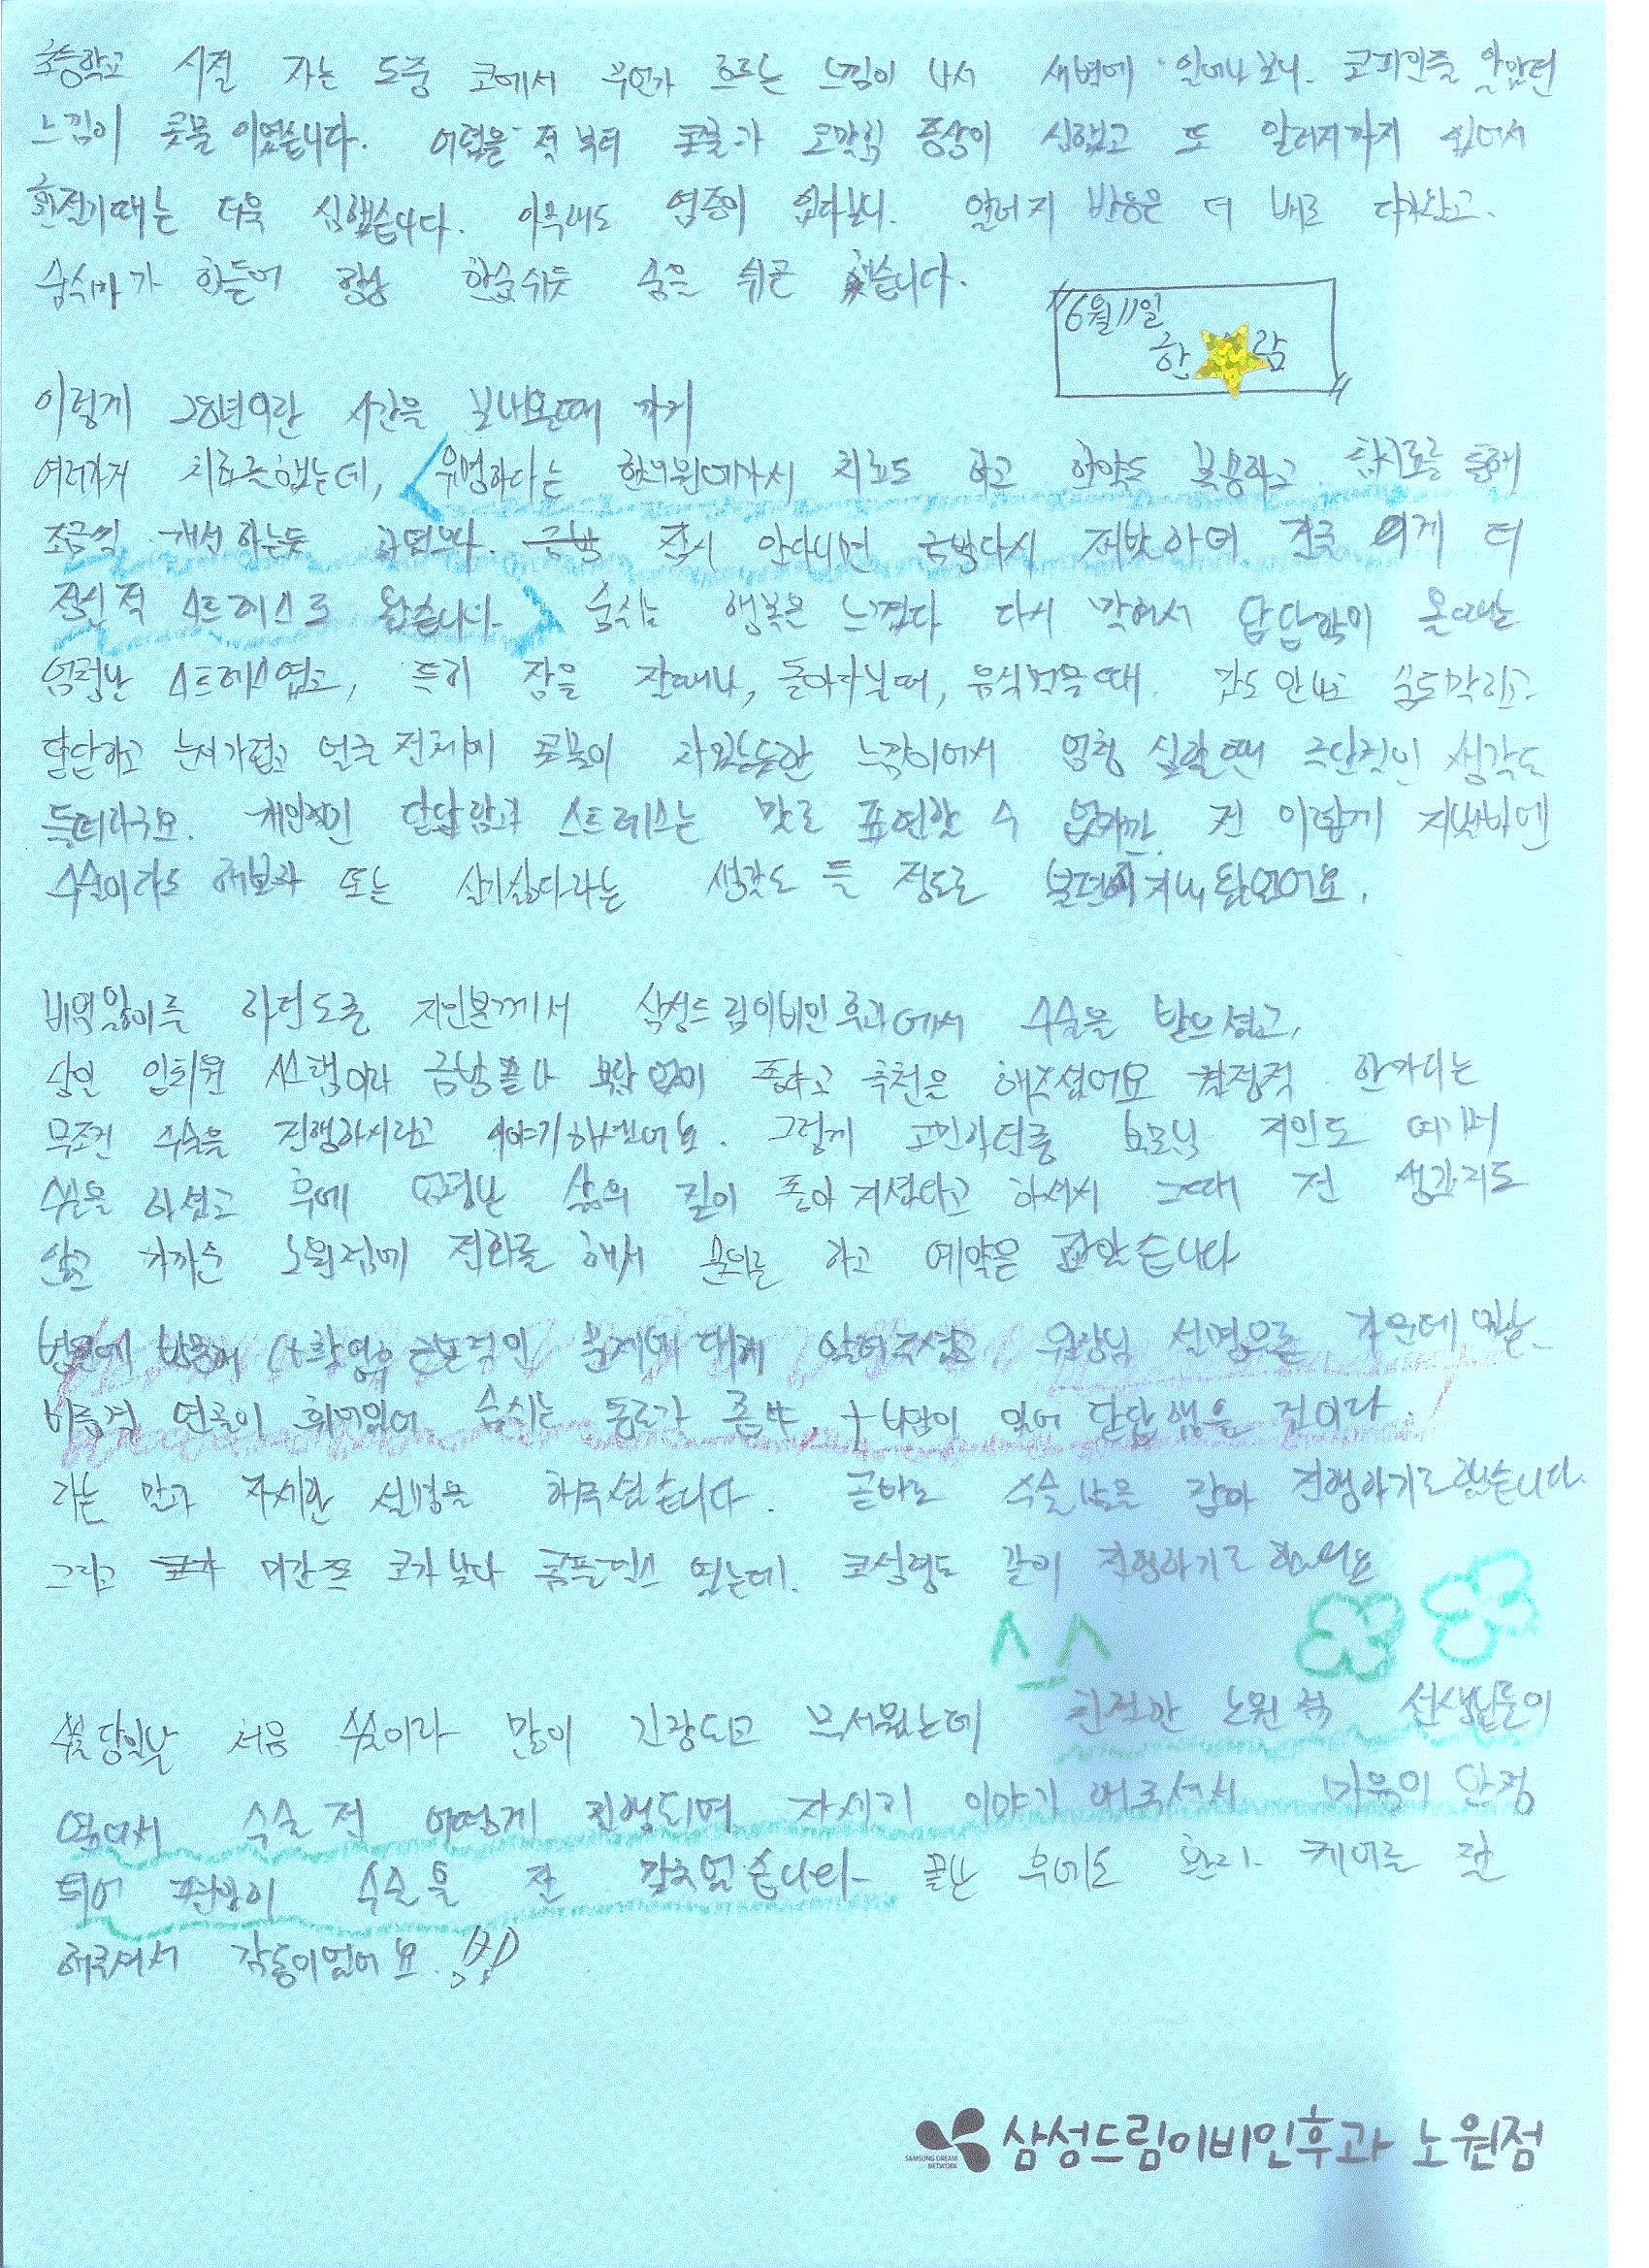 초등학교 시절 자는 도중 코에서 무언가 흐르는 느낌이 나서 새벽에 일어나보니. 코피인줄 알았던
느낌이 콧물 이였습니다. 어렸을 적 부터 콧물과 코막힘 증상이 심했고 또 알러지까지 있어서
환절기때는 더욱 심했습니다. 아무래도 염증이 있다보니. 알러지 반응은 더 배로 다가왔고.
숨쉬기가 힘들어 항상 한숨쉬듯 숨을 쉬곤 했습니다.
"6월 11일
한 람"
이렇게 28년이란 시간을 보내올때 까지
여러가지 치료를했는데, 유명하다는 한의원에가서 치료도 하고 한약도 복용하고 침치료를 통해
조금씩 개선하는듯 하였으나. 금방 잠시 안다니면 금방다시 재발하여 전국 이게 더
정신적 스트레스로 왔습니다. 숨쉬는 행복은 느꼈다 다시 막혀서 답답함이 올때는
엄청난 스트레스였고, 특히 잠을 잘때나, 돌아다닐때, 음식먹을때 맛도 안나고 숨도막히고
답답하고 눈이가렵고 얼굴 전체에 콧물이 차있는듯한 느낌이어서 엄청 심할 땐 극단적인 생각도
들더라구요. 개인적인 답답함과 스트레스는 말로 표현할 수 없지만. 전 이렇게 지낼바엔
수술이라도 해보자 또는 살기싫다라는 생각도 들 정도로 불편하게 지내왔었어요.
비염앓이를 하던도중 지인분께서 삼성드림이비인후과에서 수술을 받으셨고,
당일 입퇴원 시스템이라 금방 끝나 부담 없이 좋다고 추천을 해주셨어요 결정적 한마디는
무조건 수술을 진행하시라고 이야기하셨어요. 그렇게 고민하던중 부모님 지인도 여기서
수술을 하셨고 후에 엄청난 삶의 질이 좋아지셨다고 하셔서 그때 전 생각지도
않고 가까운 노원점에 전화를 해서 문의를 하고 예약을 잡았습니다
병원에 방문해 ct촬영후 근본적인 문제에 대해 알려주셨고 원장님 설명으론 가운데 있는
비중격 연골이 휘어있어 숨쉬는 통로가 좁다, + 비염이 있어 답답했을 것이다.
라는 말과 자세한 설명을 해주셨습니다. 곧바로 수술날을 잡아 진행하기로했습니다.
그리고 미간쪽 코가낮다 콤플렉스 였는데. 코성형도 같이 진행하기로 했어요
^_^
수술당일날 처음 수술이라 많이 긴장되고 무서웠는데 친절한 노원점 선생님들이
옆에서 수술 전 어떻게 진행되며 자세히 이야기 해주셔서 마음이 안정
되어 편안히 수술을 잘 마쳤습니다. 끝난 후에도 환자 케어를 잘
해주셔서 감동이었어요.
SAMSUNG DREAM NETWORK 삼성드림이비인후과 노원점